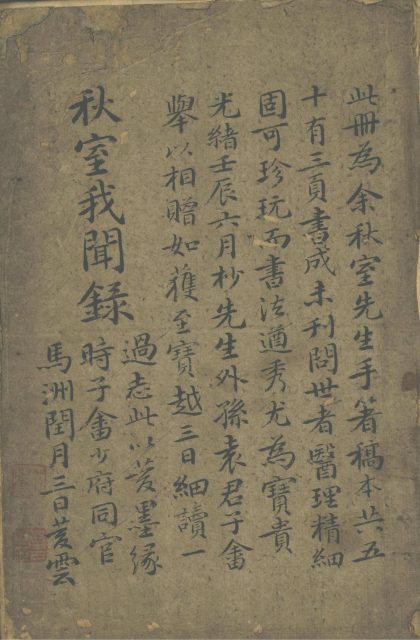 此冊為余秋室先生手著稿本共五
十有三頁書成未刊問世者醫理精細
固可珍玩而書法遒秀尤為寶貴
光緒壬辰六月杪先生外孫袁君子畬
舉以相贈如獲至寶越三日細讀一
過志此以爰墨緣
時子畬少府同官
馬洲閏月三日爰雲
秋室我聞錄